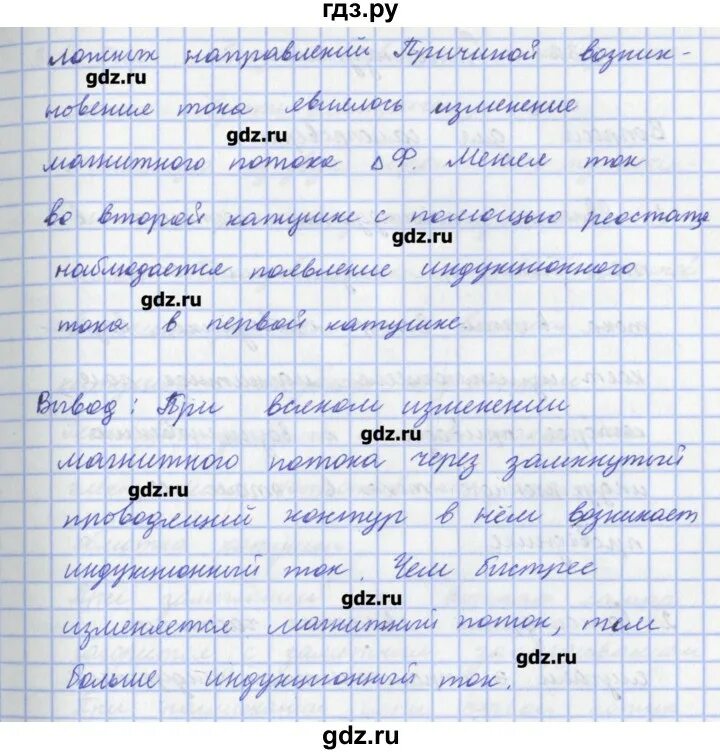 гдз.ру
ложных направлений Причиной возник-
gdz.ru
новения тока являлось изменение
gdz.ru
магнитного потока ΔФ. Меняя ток
во второй катушке с помощью реостата
gdz.ru
наблюдается появление индукционного
gdz.ru
тока в первой катушке
Вывод: При всяком изменении
gdz.ru
магнитного потока через замкнутый
gdz.ru
проводящий контур в нём возникает
индукционный ток. Чем быстрее
gdz.ru
изменяется магнитный поток, тем
gdz.ru
больше индукционный ток.
gdz.ru